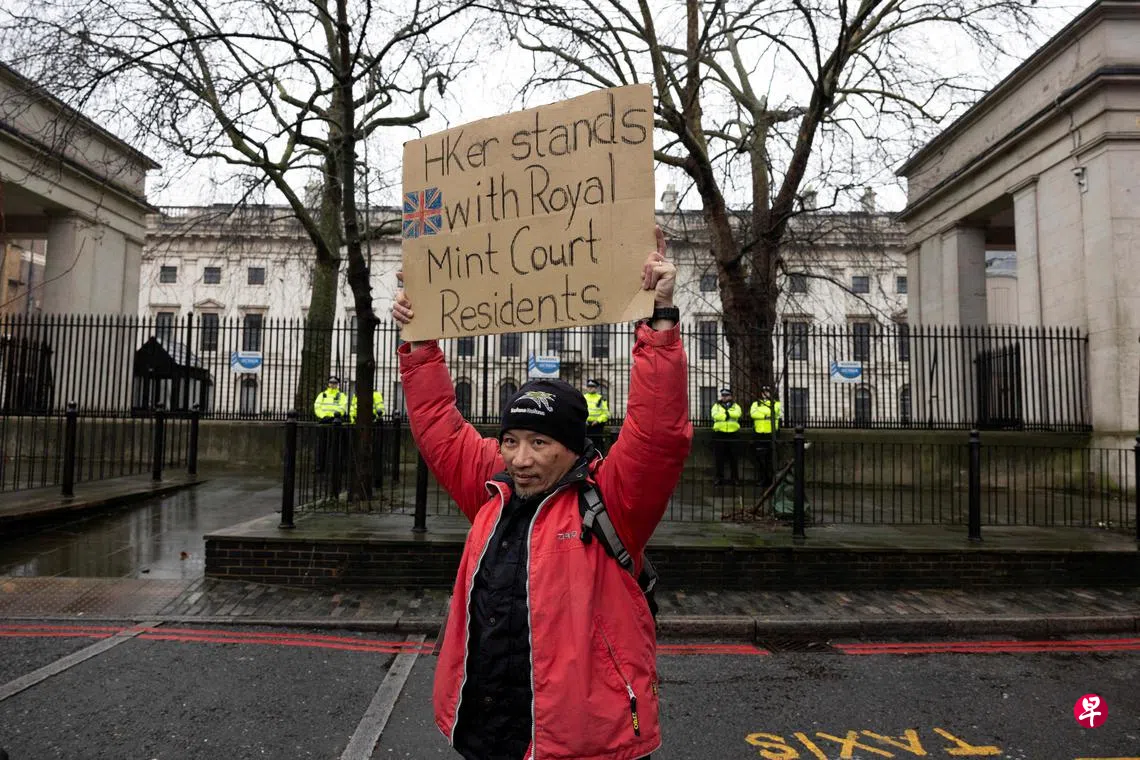 HKer stands
with Royal
Mint Court
Residents
TAXIS
早